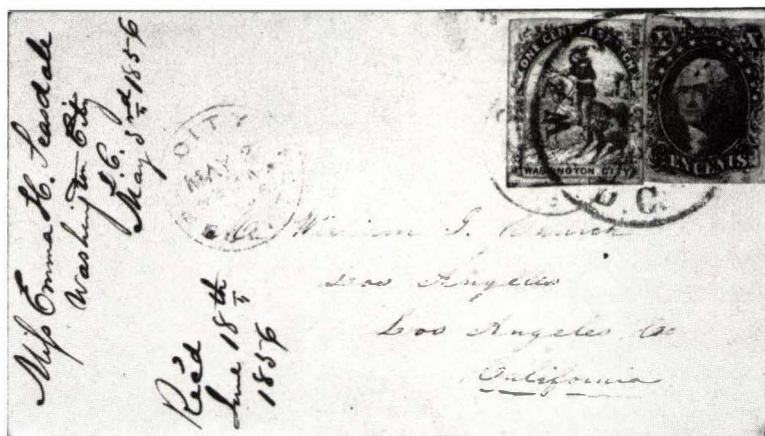 Miss Emma H.
Washington City
D.C.
May 3rd 1856
Rec'd
June 18th
1856
CITY
MAY
ONE CENT DISPATCH
WASHINGTON CITY
X X
TEN CENTS
D.C.
William
Los Angeles
Los Angeles Co
California